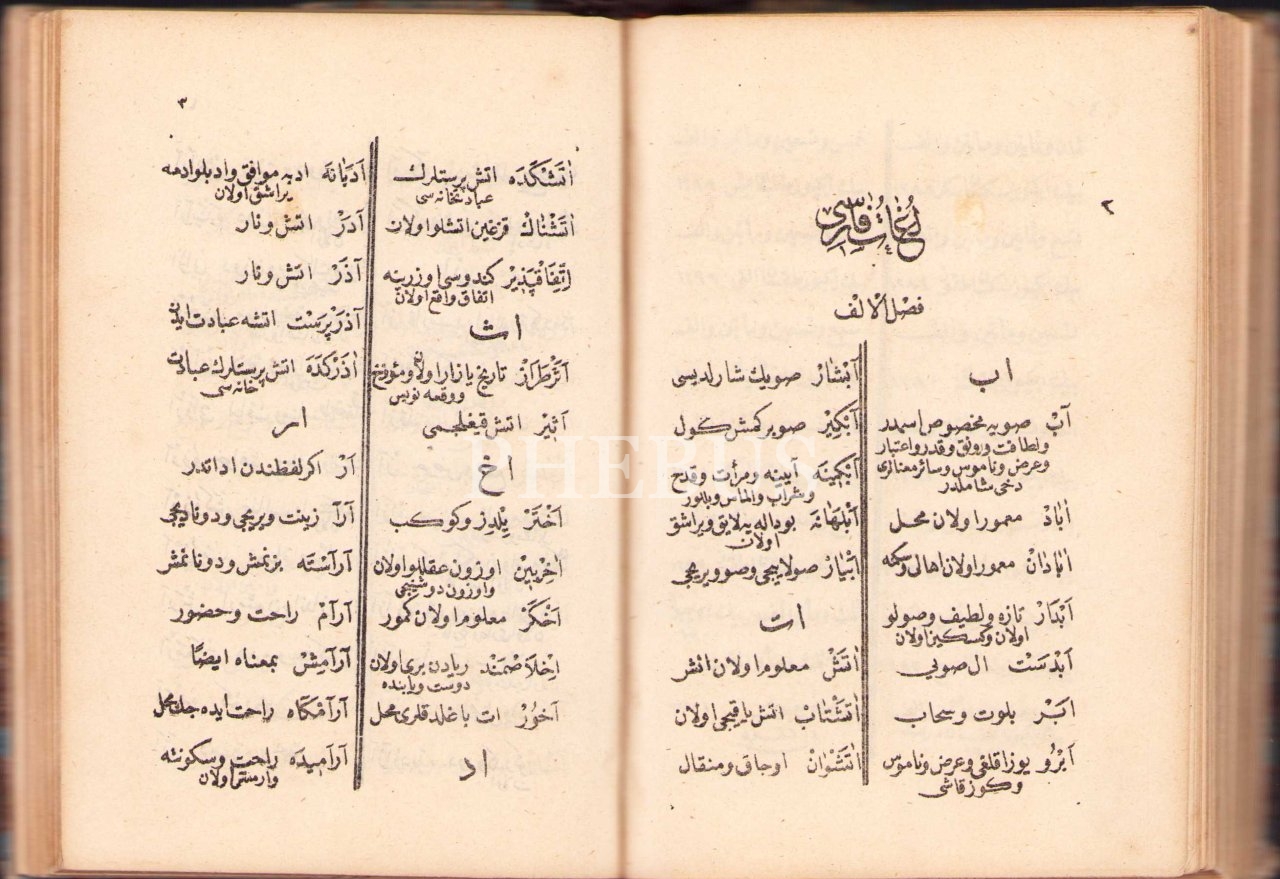 ٢
لغات فارسی
فصل الالف
اب
آبْ صویه مخصوص اسمدر
ولطافت ورونق وقدر واعتبار
وعرض وناموس وسائر معنالری
دخی شاملدر
اٰبادْ معمور اولان محل
اٰبادانْ معمور اولان اهالی
اَبْدَارْ تازه ولطیف وصولو
اولان وکسکین اولان
اَبْدَسْت ال صویی
اَبْرْ بلوت وسحاب
اَبْرُو یوز اقلغی وعرض وناموس
وکوز قاشی
آبْشَارْ صویك شارلدیسی
آبْكِیرْ صو بركمش كول
آبْكِینَه آیینه ومرأت وقدح
وشراب والماس وبللور
اَبْلَهَانَه بوداله یه لایق ویراشق
اولان
اٰبْیَارْ صولاییجی وصو ویریجی
ات
اٰتَشْ معلوم اولان اتش
اٰتَشْتَابْ اتش یاقیجی اولان
اٰتَشْدَانْ اوجاق ومنقال
٣
اٰتَشْكَدَه اتش پرستلرك
عبادتخانه سی
اٰتَشْنَاكْ قزغین اتشلو اولان
اِتِّفَاقْپَذِیرْ كندوسی اوزرینه
اتفاق واقع اولان
اث
اَثَرْطِرَازْ تاریخ یازار اولان ومؤرخ
ووقعه نویس
اَثِیرْ اتش قیغلجمی
اخ
اَخْتَرْ یلدز وكوكب
اٰخِرْبِینْ اوزون عقللو اولان
واوزون دوشنیجی
اَخْكَرْ معلوم اولان كمور
اِخْلَاصْمَنْد ریادن بری اولان
دوست وبابنده
اَخُورْ ات باغلدقلری محل
اد
اَدَبَانَه ادبه موافق وادبلو ادمه
یراشق اولان
آدَرْ اتش ونار
آذَرْ اتش ونار
آذَرْپَرَسْت اتشه عبادت ایدن
اٰذَرْكَدَه اتش پرستلرك عبادت
خانه سی
ار
اَرْ اكر لفظندن اداتدر
آرَا زینت ویریجی ودونادیجی
آرَاسْتَه بزنمش ودونانمش
آرَامْ راحت وحضور
آرَامِشْ بمعناه ایضاً
آرَامْكَاه راحت ایده جك محل
آرَامِیدَه راحت وسكونته
وارمش اولان
PHEBUS